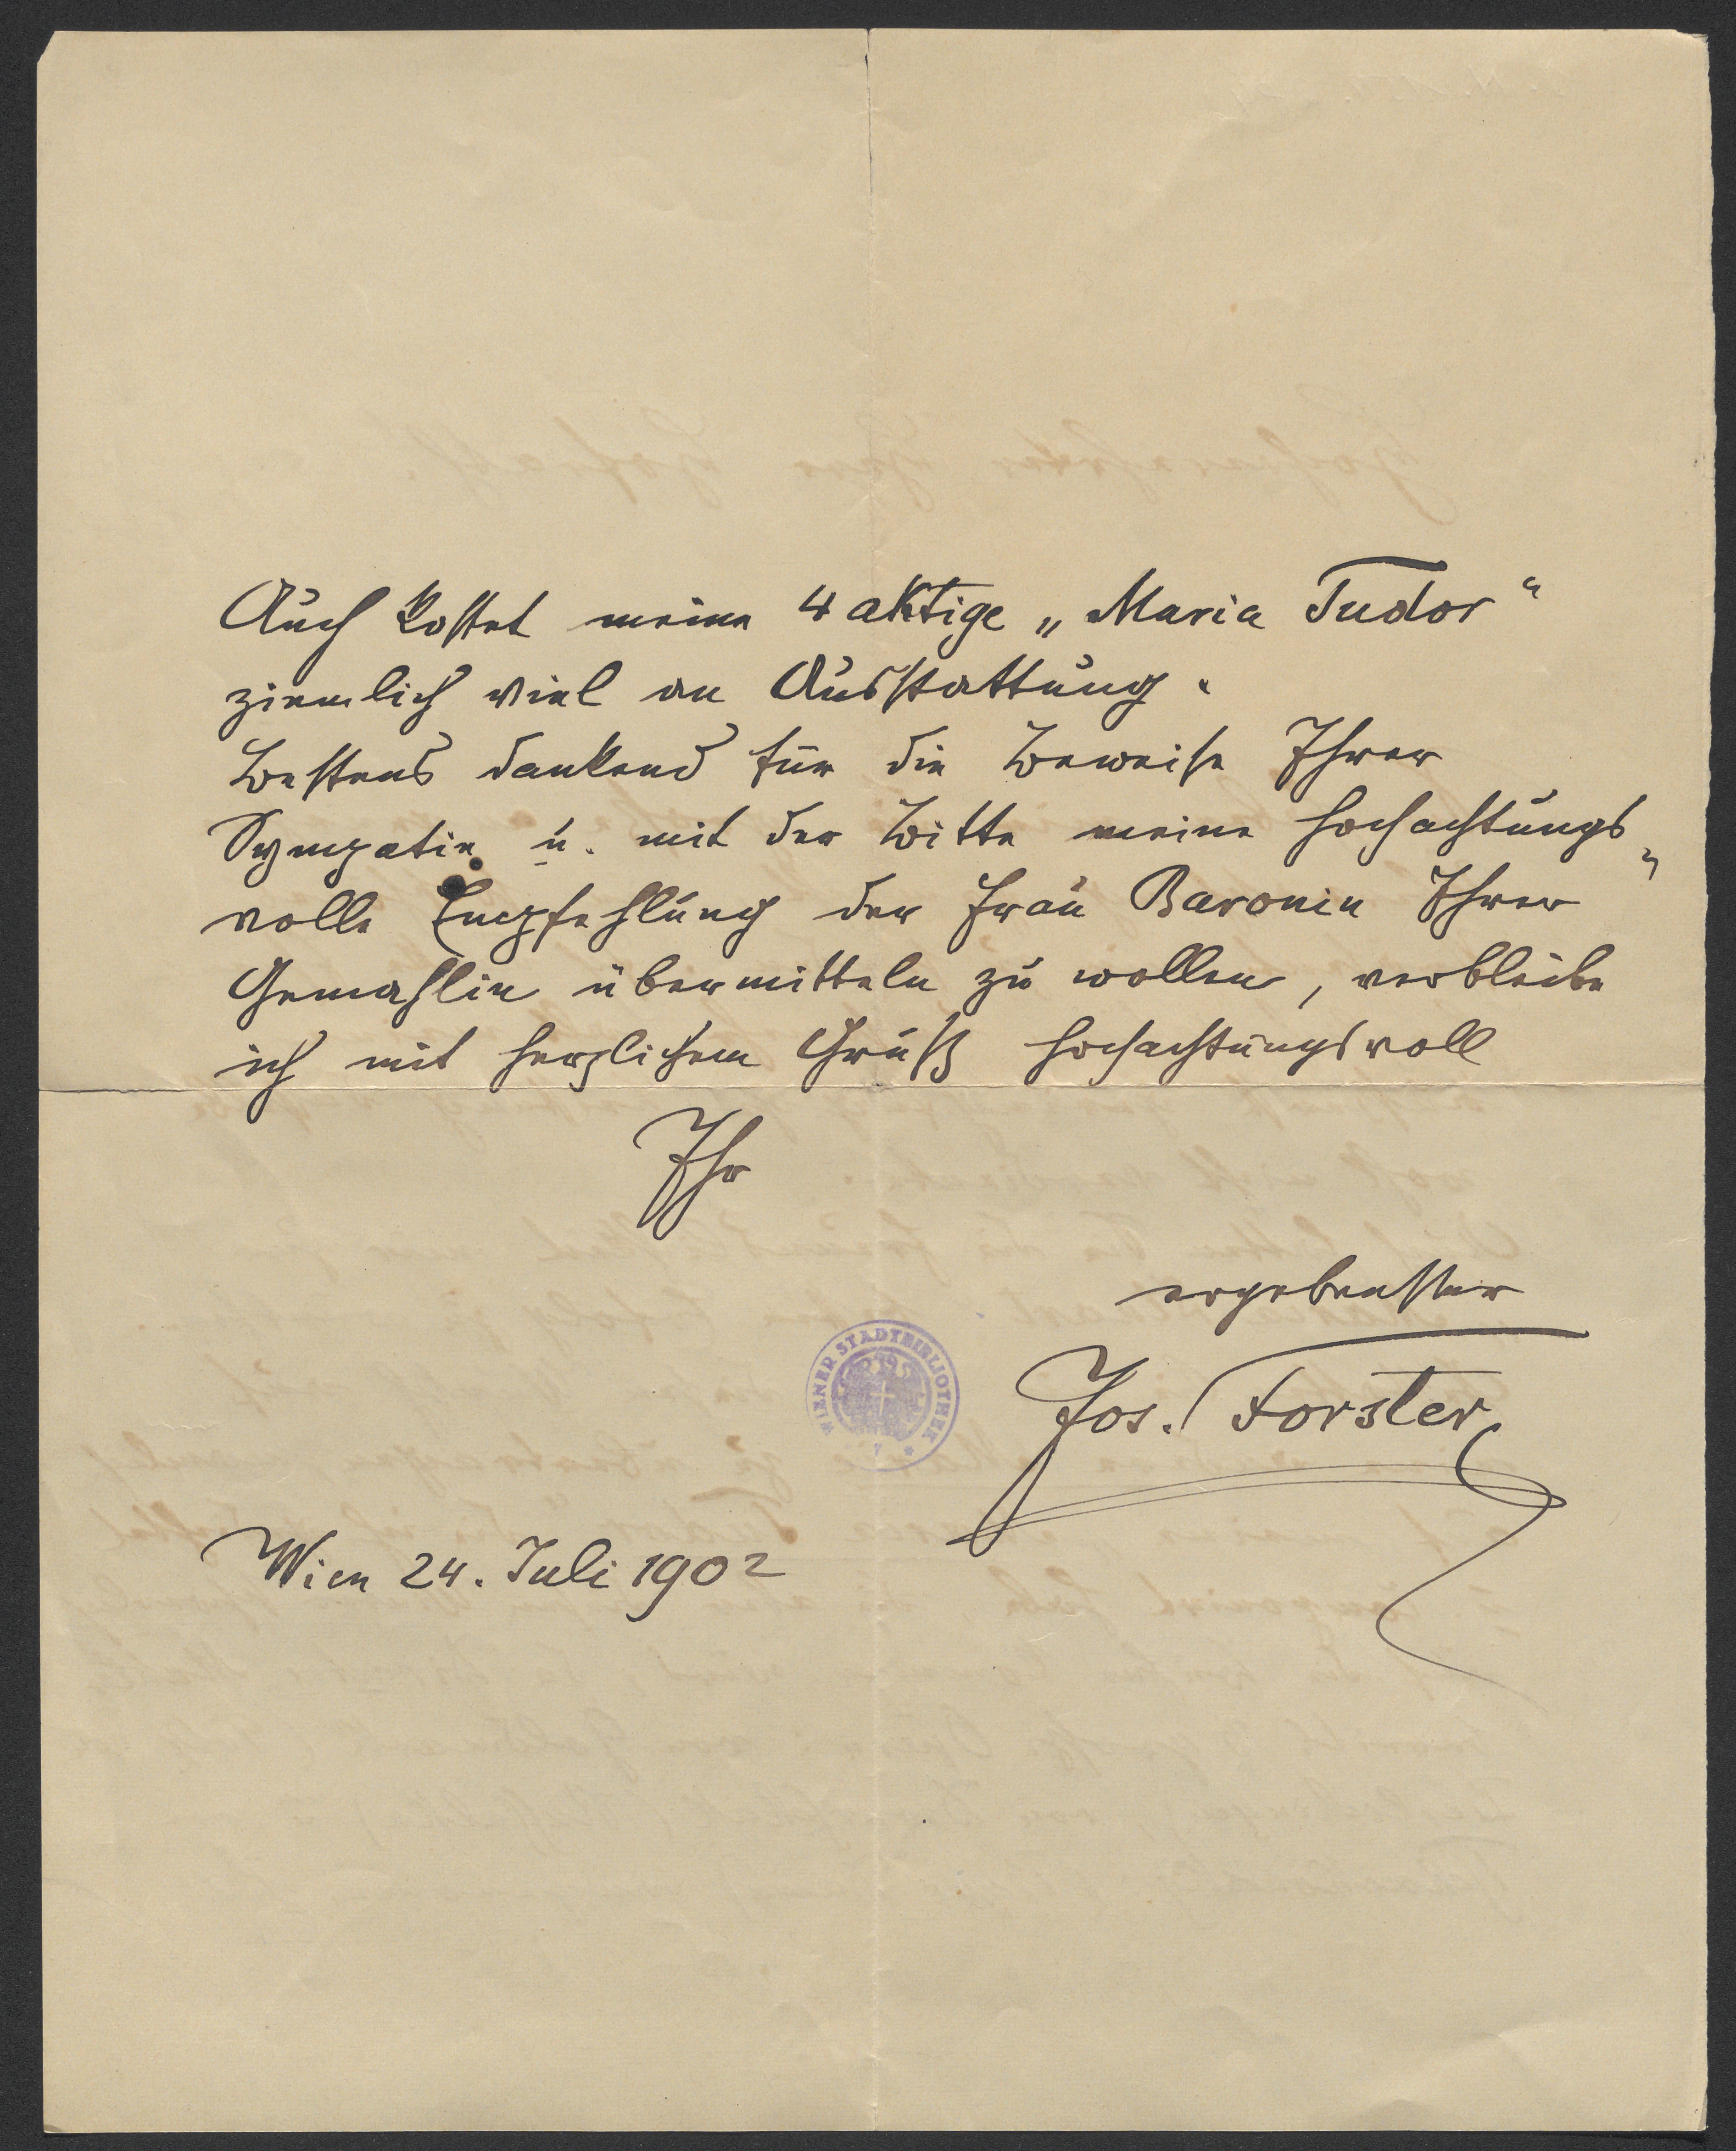 Auch kostet meine 4 aktige „Maria Tudor“
ziemlich viel an Ausstattung.
Bestens dankend für die Beweise Ihrer
Sympatie u. mit der Bitte meine hochachtungs„
volle Empfehlung der Frau Baronin Ihrer
Gemahlin übermitteln zu wollen, verbleibe
ich mit herzlichem Gruß hochachtungsvoll
Ihr
ergebenster
Jos. Forster
WIENER STADTBIBLIOTHEK
Wien 24. Juli 1902